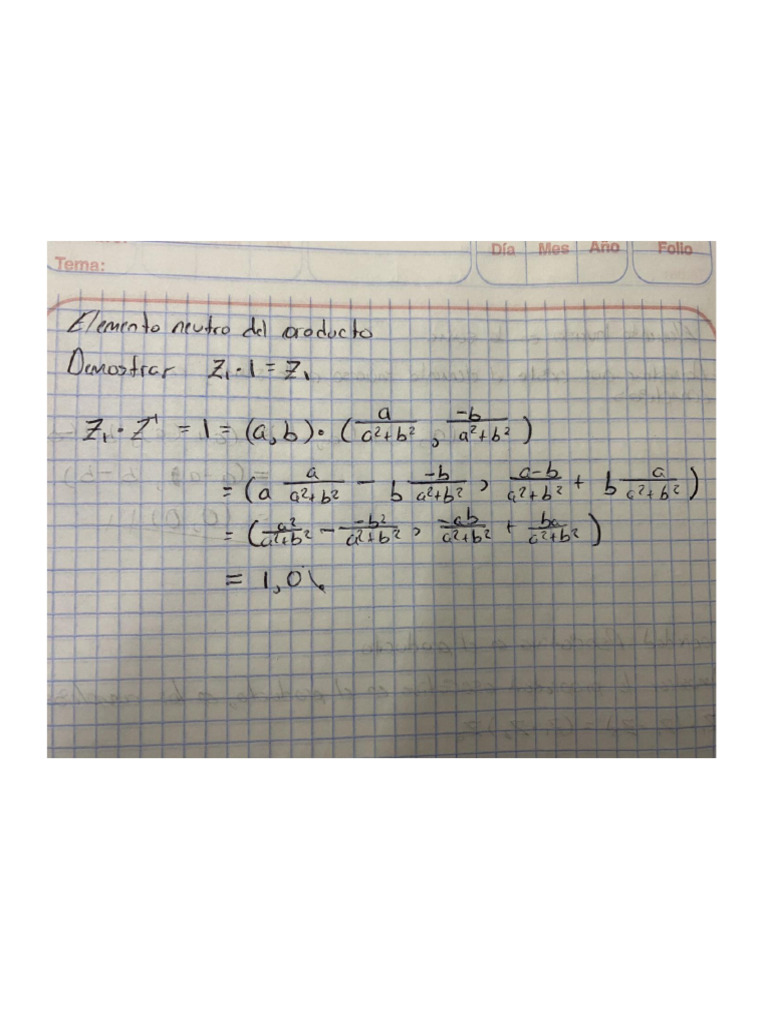 Día Mes Año Folio
Tema:
Elemento neutro del producto
Demostrar Z₁·1 = Z₁
Z₁·Z⁻¹ = 1 = (a,b)·(a/(a²+b²), -b/(a²+b²))
= (a a/(a²+b²) - b -b/(a²+b²), a-b/(a²+b²) + b a/(a²+b²))
= (a²/(a²+b²) - -b²/(a²+b²), -ab/(a²+b²) + ba/(a²+b²))
= 1,0